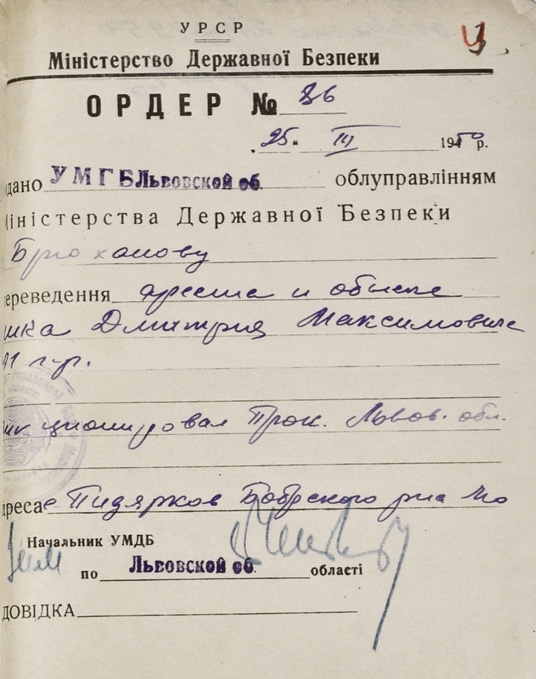 УРСР
Міністерство Державної Безпеки
ОРДЕР № 86
25. III 1950 р.
дано УМГБ Львовской об. облуправлінням
Міністерства Державної Безпеки
Брюханову
переведення ареста и обыска
Дмитрия Максимовича
91 г.р.
Прок. Львов. обл.
адреса с Пидярков Бобрского р-на
Начальник УМДБ
по Львовской об. області
ДОВІДКА